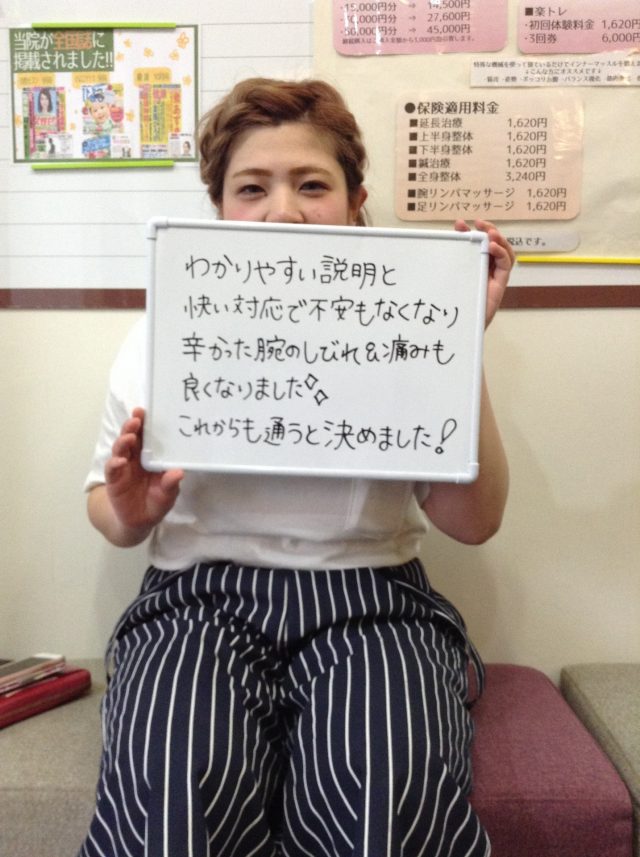 当院が全国誌に
掲載されました!!
15,000円分 ⇒ 14,500円
⇒ 27,600円
⇒ 45,000円
■楽トレ
・初回体験料金 1,620円
・3回券 6,000円
●保険適用料金
■延長治療 1,620円
■上半身整体 1,620円
■下半身整体 1,620円
■鍼治療 1,620円
■全身整体 3,240円
■腕リンパマッサージ 1,620円
■足リンパマッサージ 1,620円
税込です。
わかりやすい説明と
快い対応で不安もなくなり
辛かった腕のしびれ&痛みも
良くなりました
これからも通うと決めました!